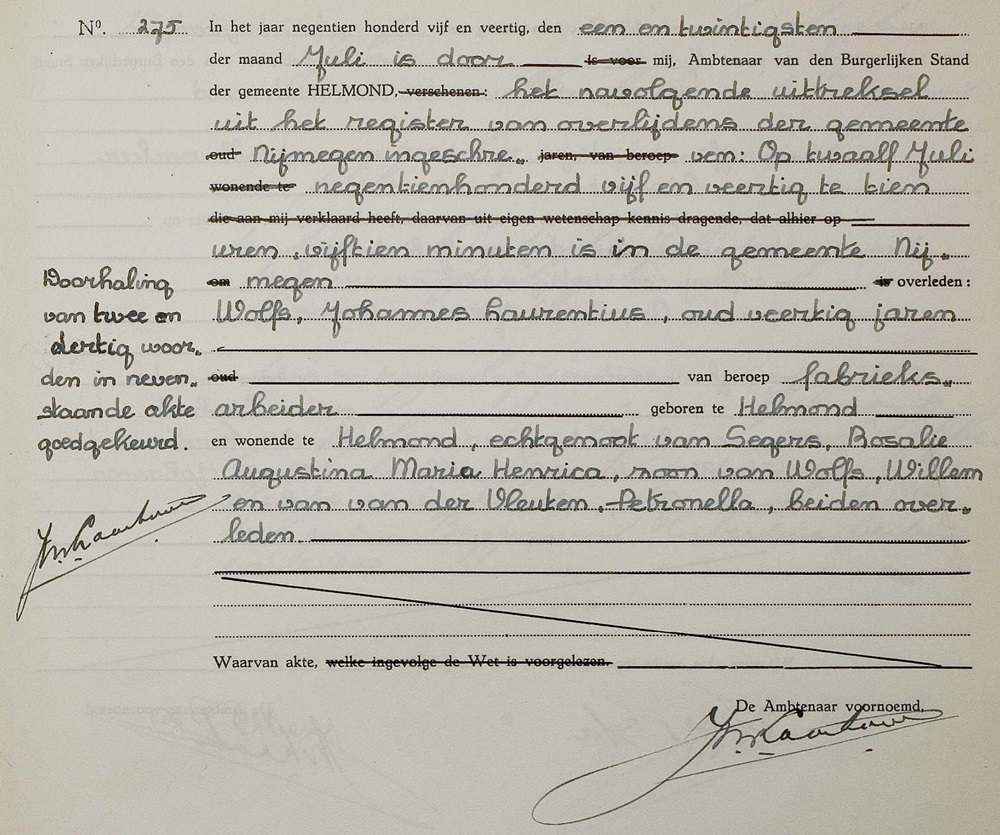 Nº. 275 In het jaar negentien honderd vijf en veertig, den een en twintigsten
der maand Juli is door is voor mij, Ambtenaar van den Burgerlijken Stand
der gemeente HELMOND, verschenen: het navolgende uittreksel
uit het register van overlijdens der gemeente
oud Nijmegen ingeschre„ jaren, van beroep ven: Op twaalf Juli
wonende te negentienhonderd vijf en veertig te tien
die aan mij verklaard heeft, daarvan uit eigen wetenschap kennis dragende, dat alhier op
uren, vijftien minuten is in de gemeente Nij„
om megen is overleden:
Wolfs, Johannes Laurentius, oud veertig jaren
oud van beroep fabrieks„
arbeider geboren te Helmond
en wonende te Helmond, echtgenoot van Segers, Rosalie
Augustina Maria Henrica, zoon van Wolfs, Willem
en van van der Vleuten, Petronella, beiden over„
leden
Waarvan akte, welke ingevolge de Wet is voorgelezen.
De Ambtenaar voornoemd,
Doorhaling
van twee en
dertig woor„
den in neven„
staande akte
goedgekeurd.